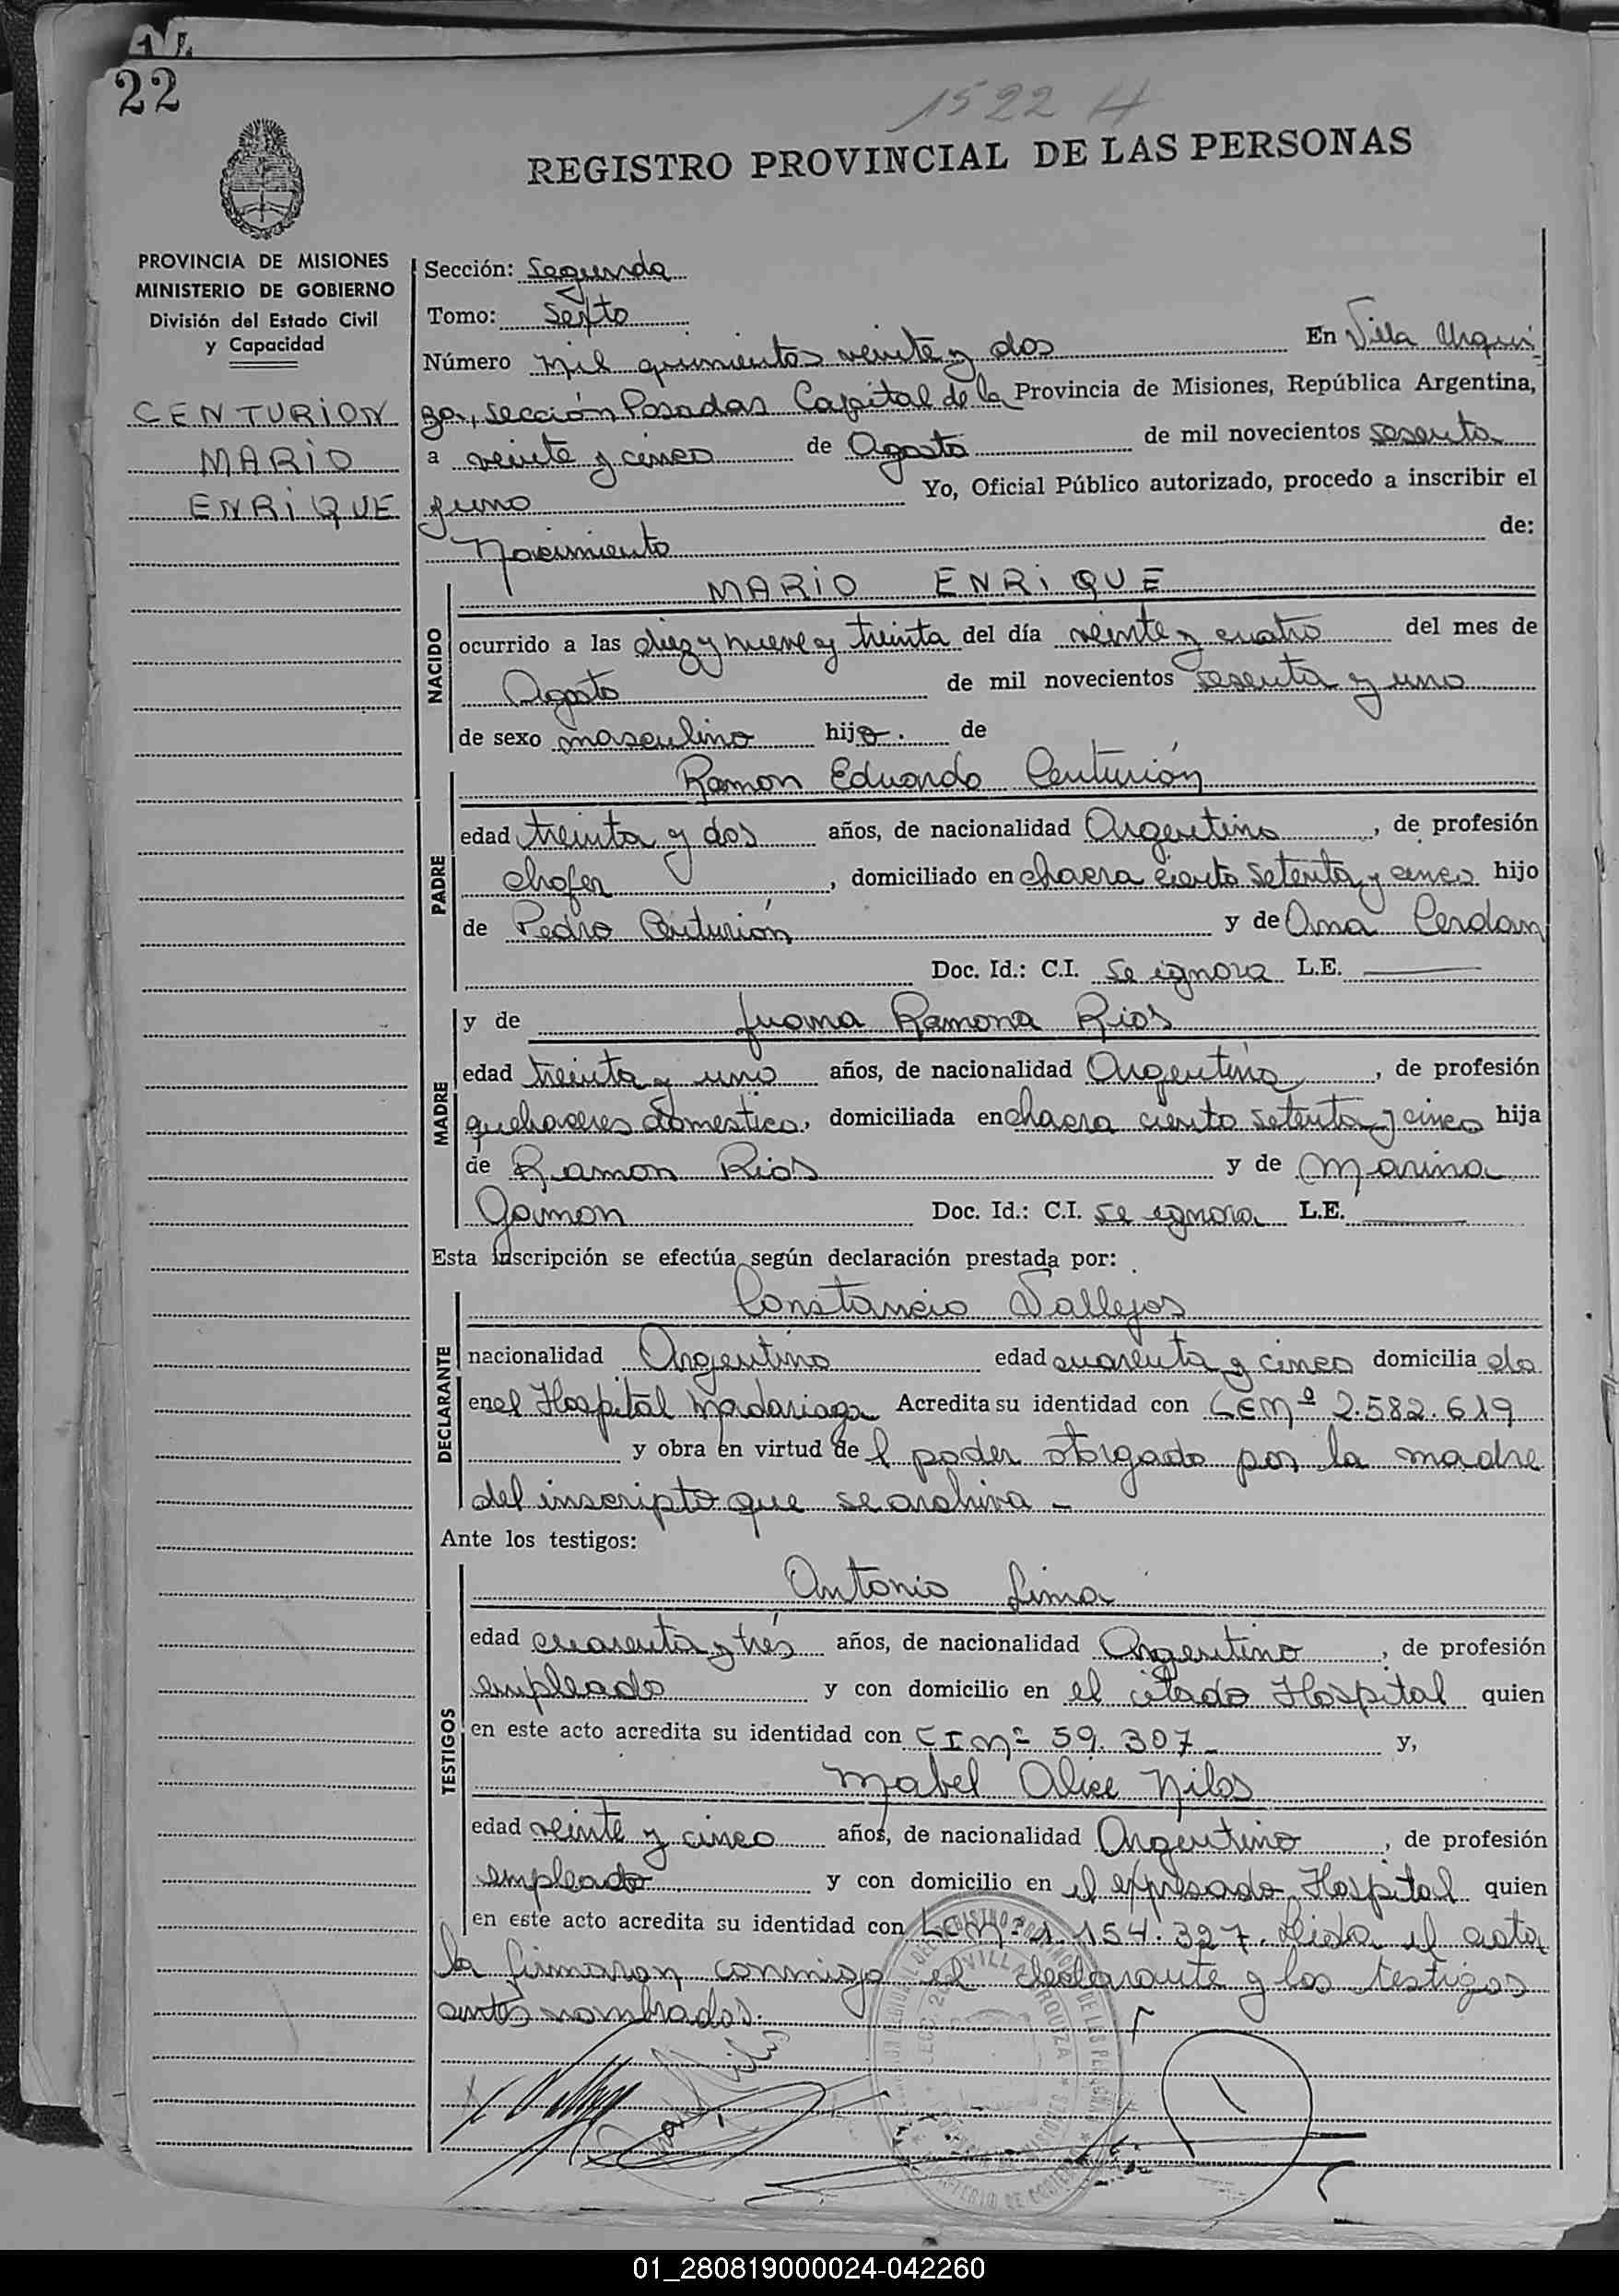 22
1522 H
REGISTRO PROVINCIAL DE LAS PERSONAS
PROVINCIA DE MISIONES
MINISTERIO DE GOBIERNO
División del Estado Civil
y Capacidad
CENTURION
MARIO
ENRIQUE
Sección: Segunda
Tomo: Sexto
Número mil quinientos veinte y dos En Villa Urqui
za, sección Posadas Capital de la Provincia de Misiones, República Argentina,
a veinte y cinco de Agosto de mil novecientos sesenta
y uno Yo, Oficial Público autorizado, procedo a inscribir el
Nacimiento de:
NACIDO
MARIO ENRIQUE
ocurrido a las diez y nueve y treinta del día veinte y cuatro del mes de
Agosto de mil novecientos sesenta y uno
de sexo masculino hijo. de
PADRE
Ramon Eduardo Centurión
edad treinta y dos años, de nacionalidad Argentino, de profesión
chofer, domiciliado en chacra ciento setenta y cinco hijo
de Pedro Centurión y de Ana Cerdan
Doc. Id.: C.I. se ignora L.E.
MADRE
y de Juana Ramona Rios
edad treinta y uno años, de nacionalidad Argentina, de profesión
quehaceres domestico, domiciliada en chacra ciento setenta y cinco hija
de Ramon Rios y de Marina
Gamon Doc. Id.: C.I. se ignora L.E.
Esta inscripción se efectúa según declaración prestada por:
DECLARANTE
Constancio Vallejos
nacionalidad Argentino edad cuarenta y cinco domicilia do
en el Hospital Madariaga Acredita su identidad con LE Nº 2.582.619
y obra en virtud de l poder otorgado por la madre
del inscripto que se archiva -
Ante los testigos:
TESTIGOS
Antonio Lima
edad cuarenta y trés años, de nacionalidad Argentino, de profesión
empleado y con domicilio en el citado Hospital quien
en este acto acredita su identidad con CI Nº 59.307 y,
Mabel Alice Nilos
edad veinte y cinco años, de nacionalidad Argentino, de profesión
empleado y con domicilio en el expresado Hospital quien
en este acto acredita su identidad con LC Nº 1.154.327. Leida el acta
la firmaron conmigo el declarante y los testigos
antes nombrados.
VILLA URQUIZA
01_280819000024-042260